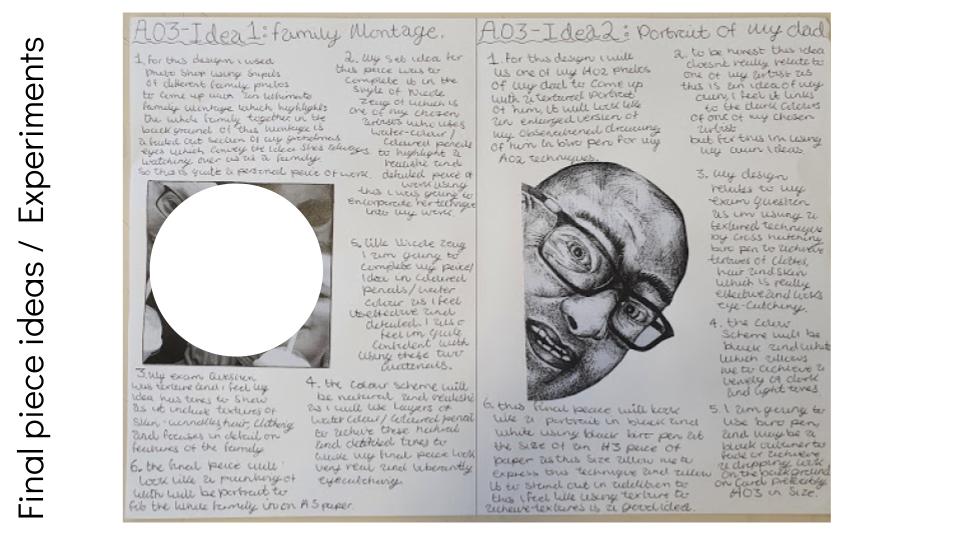 Final piece ideas / Experiments
A03-Idea 1: family Montage.
1. for this design i used
photo shop using snipits
of different family photos
to come up with an ultimate
family montage which highlights
the whole family together in the
background of this montage is
a faded out section of my grandmas
eyes which convey the idea she's always
watching over us as a family.
So this is quite a personal peice of work.
2. my set idea for
this peice was to
complete it in the
style of Nicole
Zeug which is
one of my chosen
artists who uses
water-colour/
coloured pencils
to highlight a
realistic and
detailed peice of
work using
this i was going to
encorporate her technique
into my work.
5. like Nicole Zeug
I am going to
complete my peice/
idea in coloured
pencils/water
colour as i feel
its effective and
detailed. I also
feel im quite
confident with
using these two
materials.
3. my exam question
was texture and i feel my
idea has tones to show
as it include textures of
skin-wrinkles, hair, clothing
and focuses in detail on
features of the family
4. the colour scheme will
be natural and realistic
as i will use layers of
watercolour/coloured pencil
to achive these natural
and detailed tones to
make my final peice look
very real and vibrantly
eyecatching.
6. the final peice will
look like a painting of
width will be portrait to
fit the whole family in on A3 paper.
A03-Idea2: Portrait of my dad
1. for this design i will
us one of my A02 photos
of my dad to come up
with a textured portrait
of him, it will look like
an enlarged version of
my observational drawing
of him in biro pen for my
A02 techniques.
2. to be honest this idea
doesnt really relate to
one of my artist as
this is an idea of my
own, i feel it links
to the dark colours
of one of my chosen
artist
but for this im using
my own ideas
3. my design
relates to my
exam question
as im using a
textured technique
by cross hatching
biro pen to achieve
textures of clothes,
hair and skin
which is really
effective and looks
eye-catching.
4. the colour
scheme will be
black and white
which allows
me to achieve a
variety of dark
and light tones.
5. I am going to
use biro pen
and maybe a
black outliner to
fade or achieve
a dripping look
on the background
on card preferably
A03 in size.
6. this final peace will look
like a portrait in black and
white using black biro pen at
the size of an A3 peice of
paper as this size allow me to
express this technique and allow
it to stand out in addition to
this i feel like using texture to
achieve textures is a good idea.